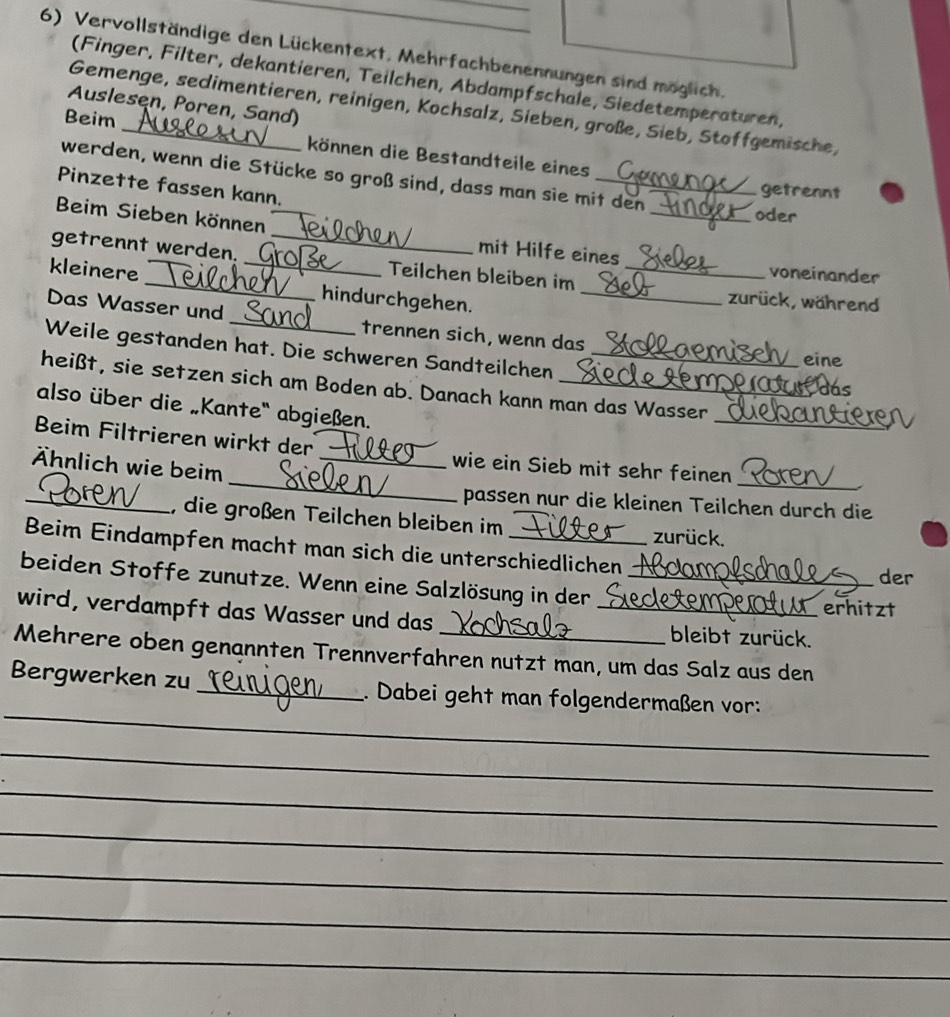 6) Vervollständige den Lückentext. Mehrfachbenennungen sind möglich.
(Finger, Filter, dekantieren, Teilchen, Abdampfschale, Siedetemperaturen,
Gemenge, sedimentieren, reinigen, Kochsalz, Sieben, große, Sieb, Stoffgemische,
Auslesen, Poren, Sand)
Beim Auslesen können die Bestandteile eines Gemenge getrennt
werden, wenn die Stücke so groß sind, dass man sie mit den finger oder
Pinzette fassen kann.
Beim Sieben können Teilchen mit Hilfe eines Siebes voneinander
getrennt werden. Große Teilchen bleiben im Sieb zurück, während
kleinere Teilchen hindurchgehen.
Das Wasser und Sand trennen sich, wenn das Stoffgemisch eine
Weile gestanden hat. Die schweren Sandteilchen Siedetemperaturen das
heißt, sie setzen sich am Boden ab. Danach kann man das Wasser diekantieren
also über die „Kante" abgießen.
Beim Filtrieren wirkt der filter wie ein Sieb mit sehr feinen Poren.
Ähnlich wie beim Sieben passen nur die kleinen Teilchen durch die
Poren, die großen Teilchen bleiben im filter zurück.
Beim Eindampfen macht man sich die unterschiedlichen Abdampfschale der
beiden Stoffe zunutze. Wenn eine Salzlösung in der Siedetemperatur erhitzt
wird, verdampft das Wasser und das Kochsalz bleibt zurück.
Mehrere oben genannten Trennverfahren nutzt man, um das Salz aus den
Bergwerken zu reinigen. Dabei geht man folgendermaßen vor: